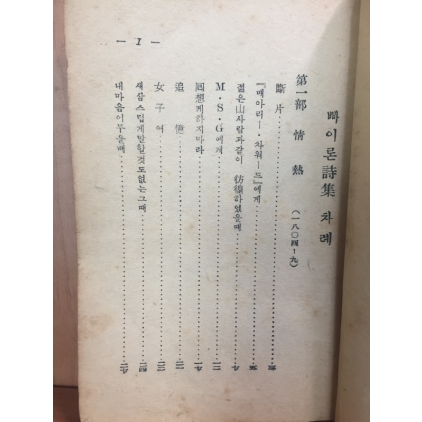 빠이론詩集 차례
第一部 情熱 (一八〇四—九)
斷片
『메아리—·차워—드』에게
젊은山사람과같이 彷徨하였을때
M·S·G에게
回想케하지마라
追憶
女子여
새삼스럽게말할것도없는그때
내마음이무들때
— 1 —